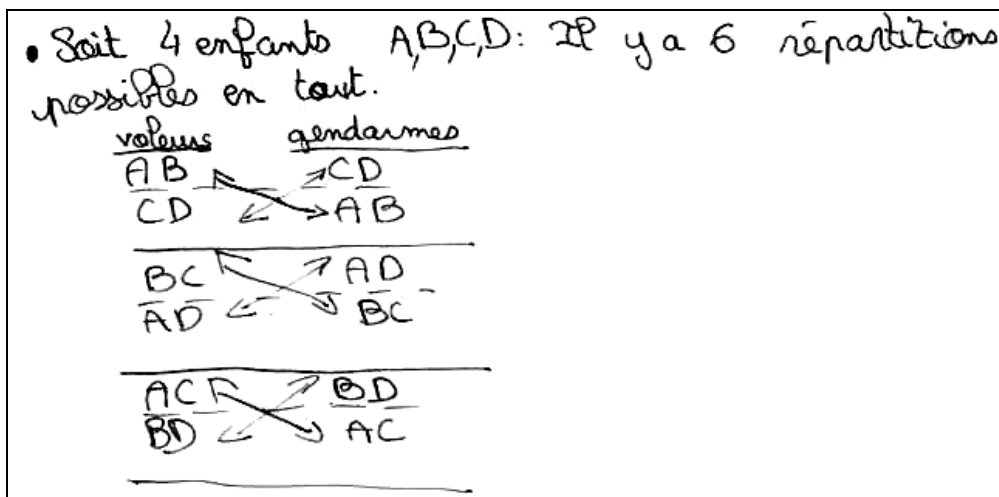 • Soit 4 enfants A,B,C,D: Il y a 6 répartitions
possibles en tout.
voleurs gendarmes
AB CD
CD AB
BC AD
AD BC
AC BD
BD AC